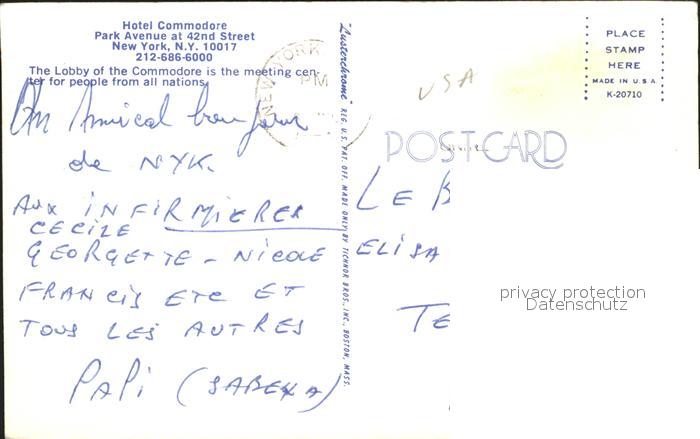 Hotel Commodore
Park Avenue at 42nd Street
New York, N.Y. 10017
212-686-6000
The Lobby of the Commodore is the meeting cen-
ter for people from all nations.
Un Amical bonjour
de NYK.
AUX INFIRMIERES
CECILE
GEORGETTE - NICOLE
FRANCIS ETC ET
TOUS LES AUTRES
PAPI (SABENA)
"Lusterchrome" REG. U.S. PAT. OFF. MADE ONLY BY TICHNOR BROS., INC., BOSTON, MASS.
NEW YORK
PM
USA
PLACE
STAMP
HERE
MADE IN U.S.A.
K-20710
POST CARD
LE B
ELISA
TE
privacy protection
Datenschutz